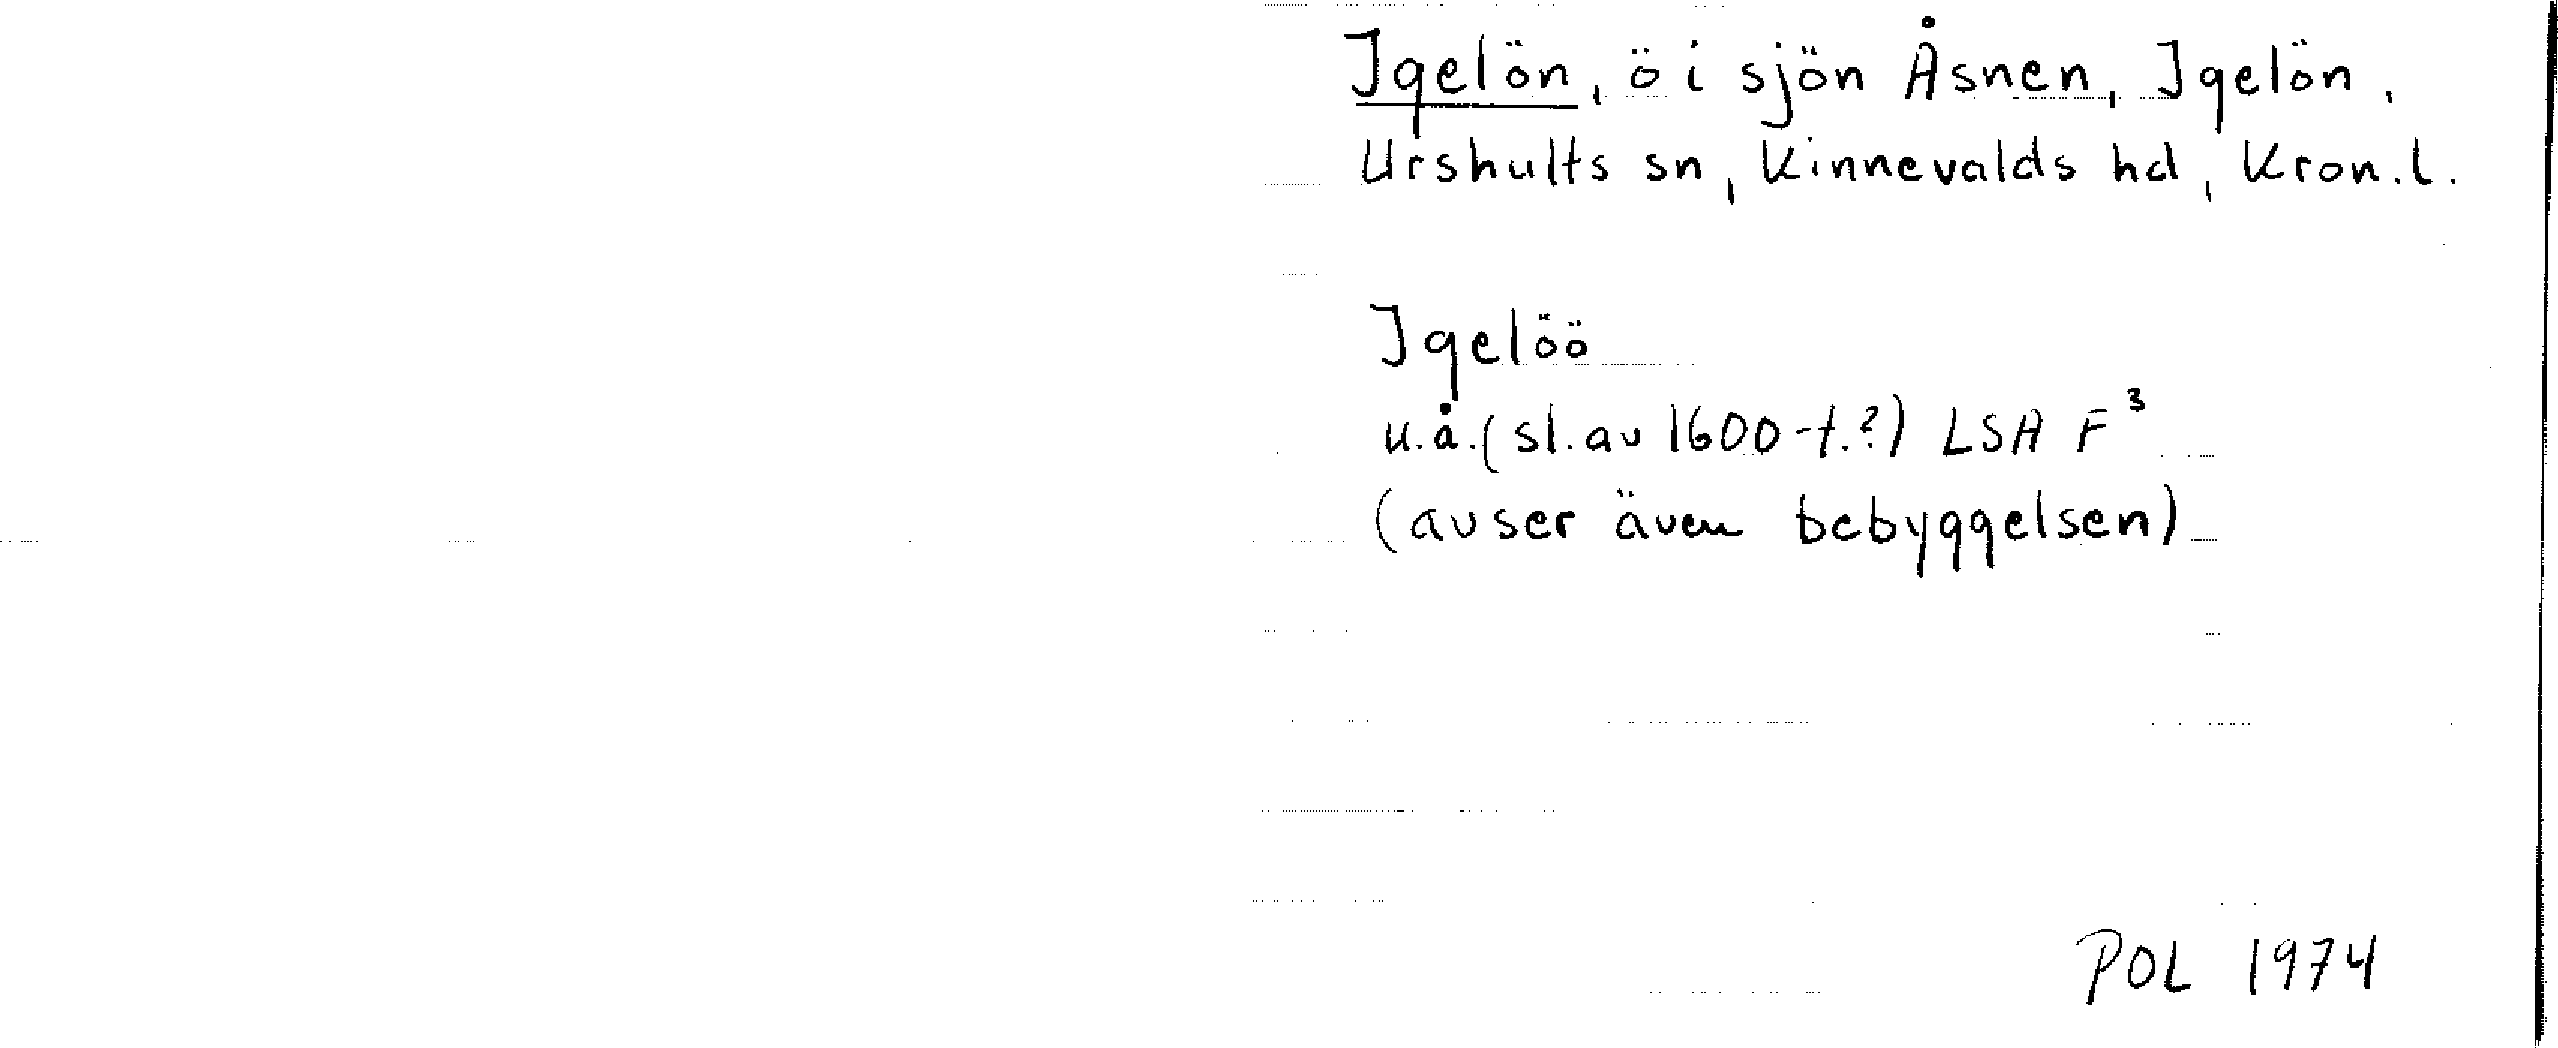 Igelön, ö i sjön Åsnen, Igelön,
Urshults sn, Kinnevalds hd, Kron.l.
Igelöö
u.å. (sl. av 1600-t.?) LSA F³
(avser även bebyggelsen)
POL 1974